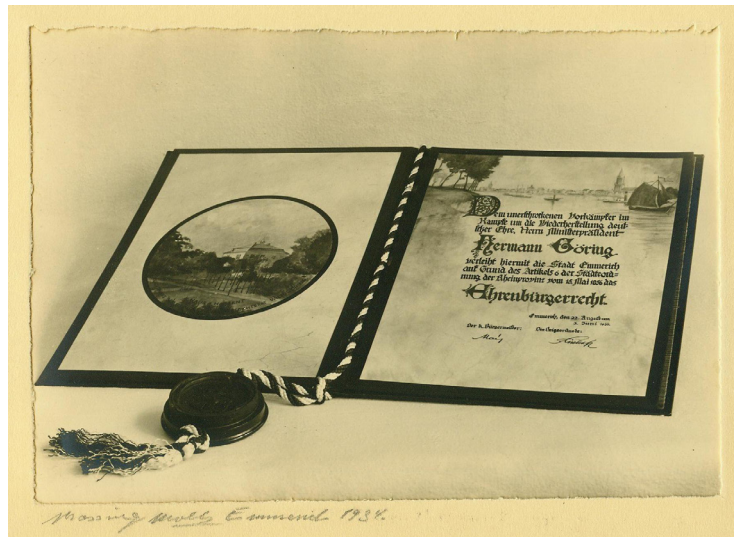 Dem unerschrockenen Vorkämpfer im
Kampfe um die Wiederherstellung deut-
scher Ehre, Herrn Ministerpräsident
Hermann Göring
verleiht hiermit die Stadt Emmerich
auf Grund des Artikels 6 der Städteord-
nung der Rheinprovinz vom 15. Mai 1856 das
Ehrenbürgerrecht.
Emmerich, den
Der k. Bürgermeister: Die Beigeordnete:
Emmerich 1934.